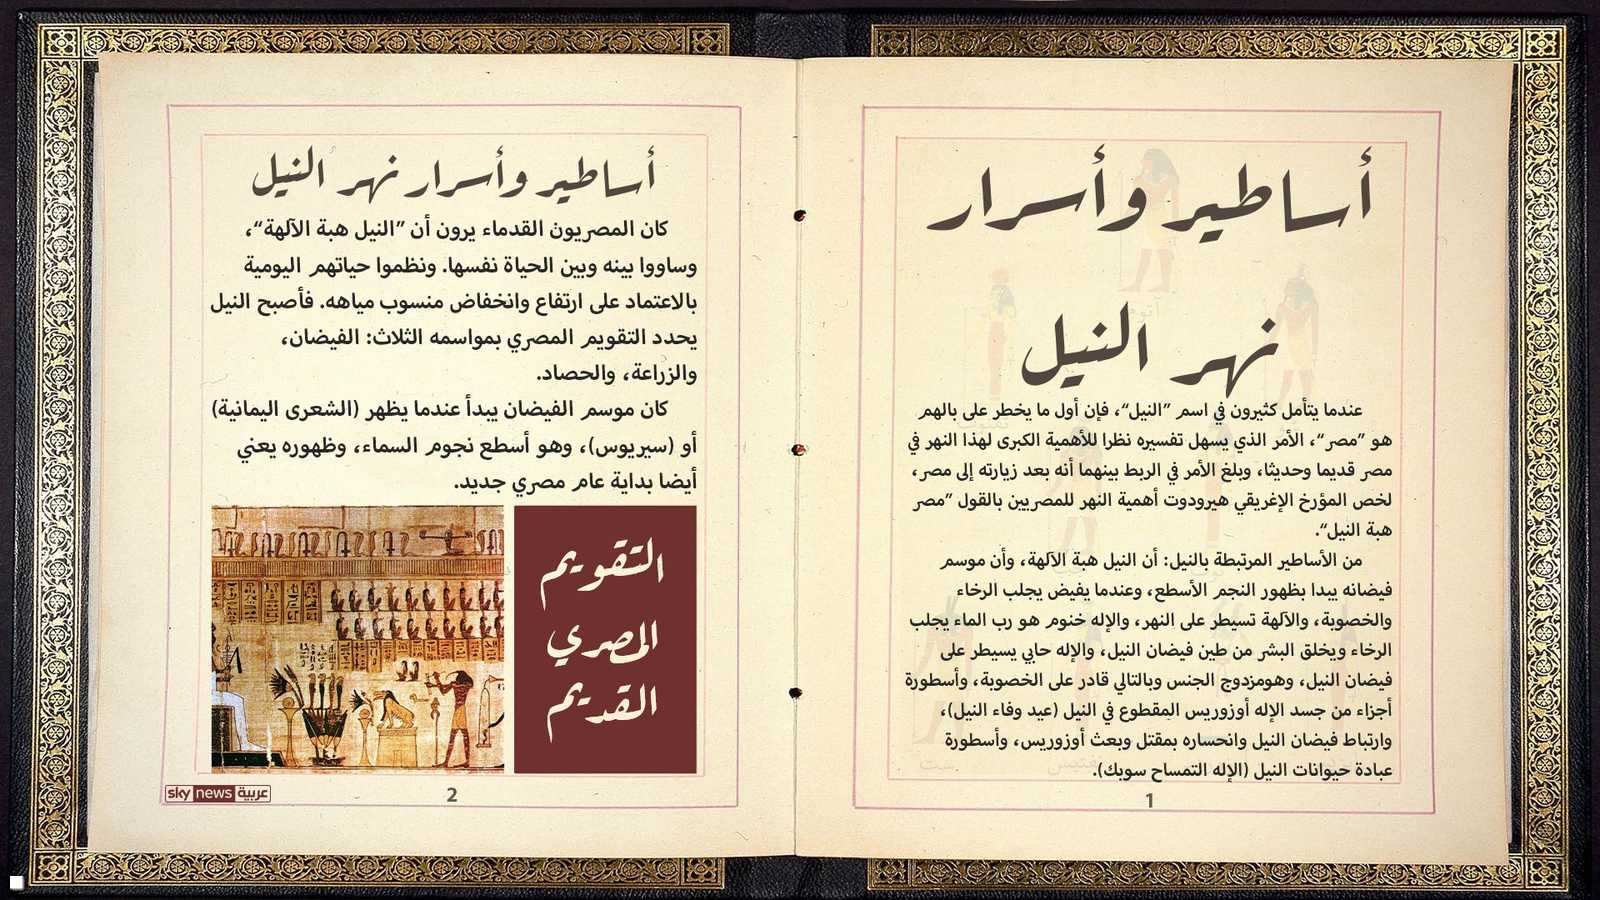 أساطير وأسرار
نهر النيل
عندما يتأمل كثيرون في اسم ”النيل“، فإن أول ما يخطر على بالهم
هو ”مصر“، الأمر الذي يسهل تفسيره نظرا للأهمية الكبرى لهذا النهر في
مصر قديما وحديثا، وبلغ الأمر في الربط بينهما أنه بعد زيارته إلى مصر،
لخص المؤرخ الإغريقي هيرودوت أهمية النهر للمصريين بالقول ”مصر
هبة النيل“.
من الأساطير المرتبطة بالنيل: أن النيل هبة الآلهة، وأن موسم
فيضانه يبدا بظهور النجم الأسطع، وعندما يفيض يجلب الرخاء
والخصوبة، والآلهة تسيطر على النهر، والإله خنوم هو رب الماء يجلب
الرخاء ويخلق البشر من طين فيضان النيل، والإله حابي يسيطر على
فيضان النيل، وهومزدوج الجنس وبالتالي قادر على الخصوبة، وأسطورة
أجزاء من جسد الإله أوزوريس المقطوع في النيل (عيد وفاء النيل)،
وارتباط فيضان النيل وانحساره بمقتل وبعث أوزوريس، وأسطورة
عبادة حيوانات النيل (الإله التمساح سوبك).
1
أساطير وأسرار نهر النيل
كان المصريون القدماء يرون أن ”النيل هبة الآلهة“،
وساووا بينه وبين الحياة نفسها. ونظموا حياتهم اليومية
بالاعتماد على ارتفاع وانخفاض منسوب مياهه. فأصبح النيل
يحدد التقويم المصري بمواسمه الثلاث: الفيضان،
والزراعة، والحصاد.
كان موسم الفيضان يبدأ عندما يظهر (الشعرى اليمانية)
أو (سيريوس)، وهو أسطع نجوم السماء، وظهوره يعني
أيضا بداية عام مصري جديد.
التقويم
المصري
القديم
2
sky news عربية